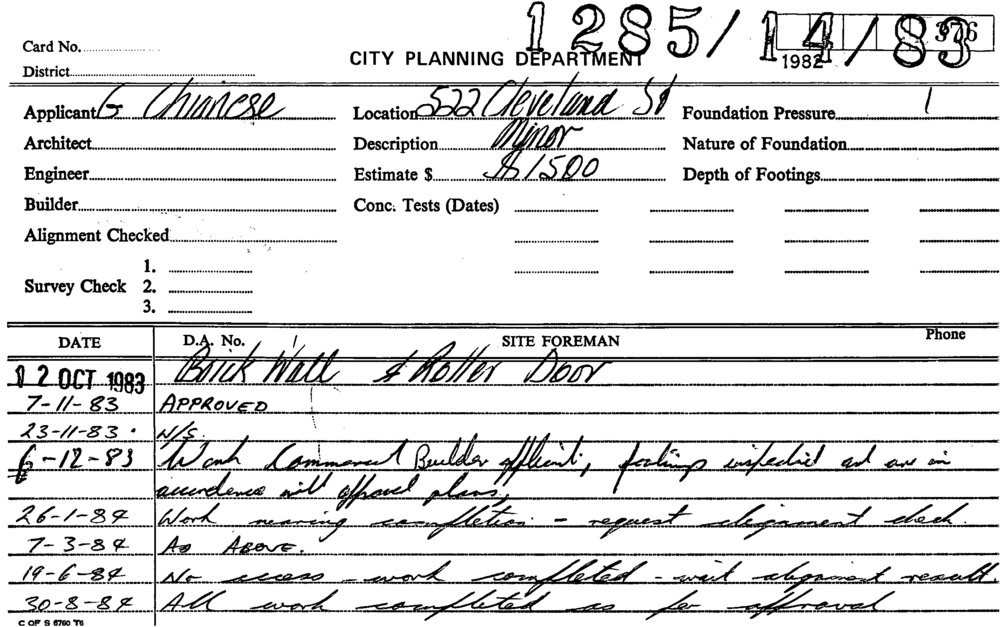 1285/14/83
376
1982
Card No.
CITY PLANNING DEPARTMENT
District
Applicant G Chianese
Location 522 Cleveland St
Foundation Pressure
Architect
Description Minor
Nature of Foundation
Engineer
Estimate $ $1500
Depth of Footings
Builder
Conc. Tests (Dates)
Alignment Checked
1.
Survey Check 2.
3.
DATE D.A. No. SITE FOREMAN Phone
12 OCT 1983 Brick Wall & Roller Door
7-11-83 APPROVED
23-11-83. N/S.
6-12-83 Work Commenced Builder applicant, footings inspected and are in
accordence with approved plans,
26-1-84 Work nearing completion - request alignment check.
7-3-84 AS ABOVE.
19-6-84 No access - work completed - wait alignment result.
30-8-84 All work completed as per approval
C OF S 6760 T6